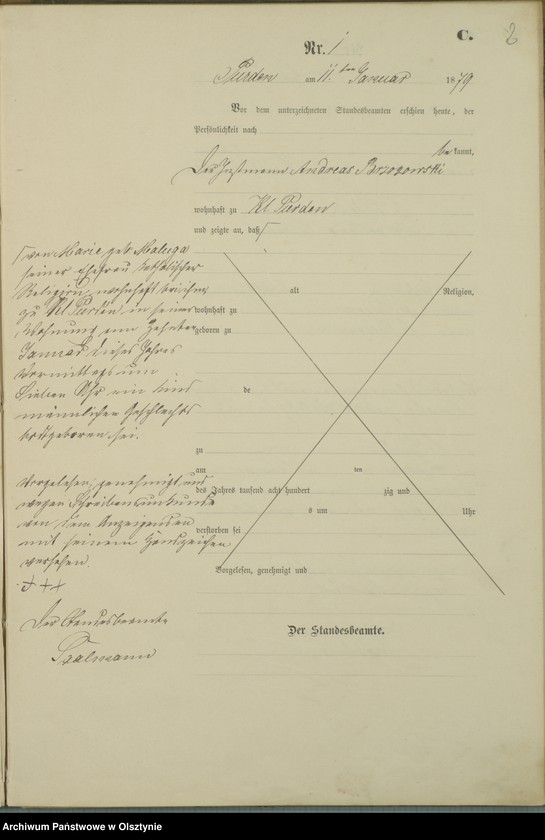 C.
2
Nr. 1
Purden am 11. ten Januar 1879
Vor dem unterzeichneten Standesbeamten erschien heute, der
Persönlichkeit nach
be kannt,
Der Instmann Andreas Brzozowski
wohnhaft zu Kl Purden
und zeigte an, daß
von Marie, geb Maluga
seiner Ehefrau katholischer
Religion, wohnhaft bei ihm
zu Kl Purden, in seiner
Wohnung am Zehnten
Januar dieses Jahres
Vormittags um
sieben Uhr ein Kind
männlichen Geschlechts
todtgeboren sei.
Vorgelesen, genehmigt und
wegen Schreibensunkunde
von dem Anzeigenden
mit seinem Handzeichen
versehen.
+++
Der Standesbeamte
alt Religion,
wohnhaft zu
geboren zu
de
zu
am ten
des Jahres tausend acht hundert zig und
s um Uhr
verstorben sei
Vorgelesen, genehmigt und
Der Standesbeamte.
Archiwum Państwowe w Olsztynie